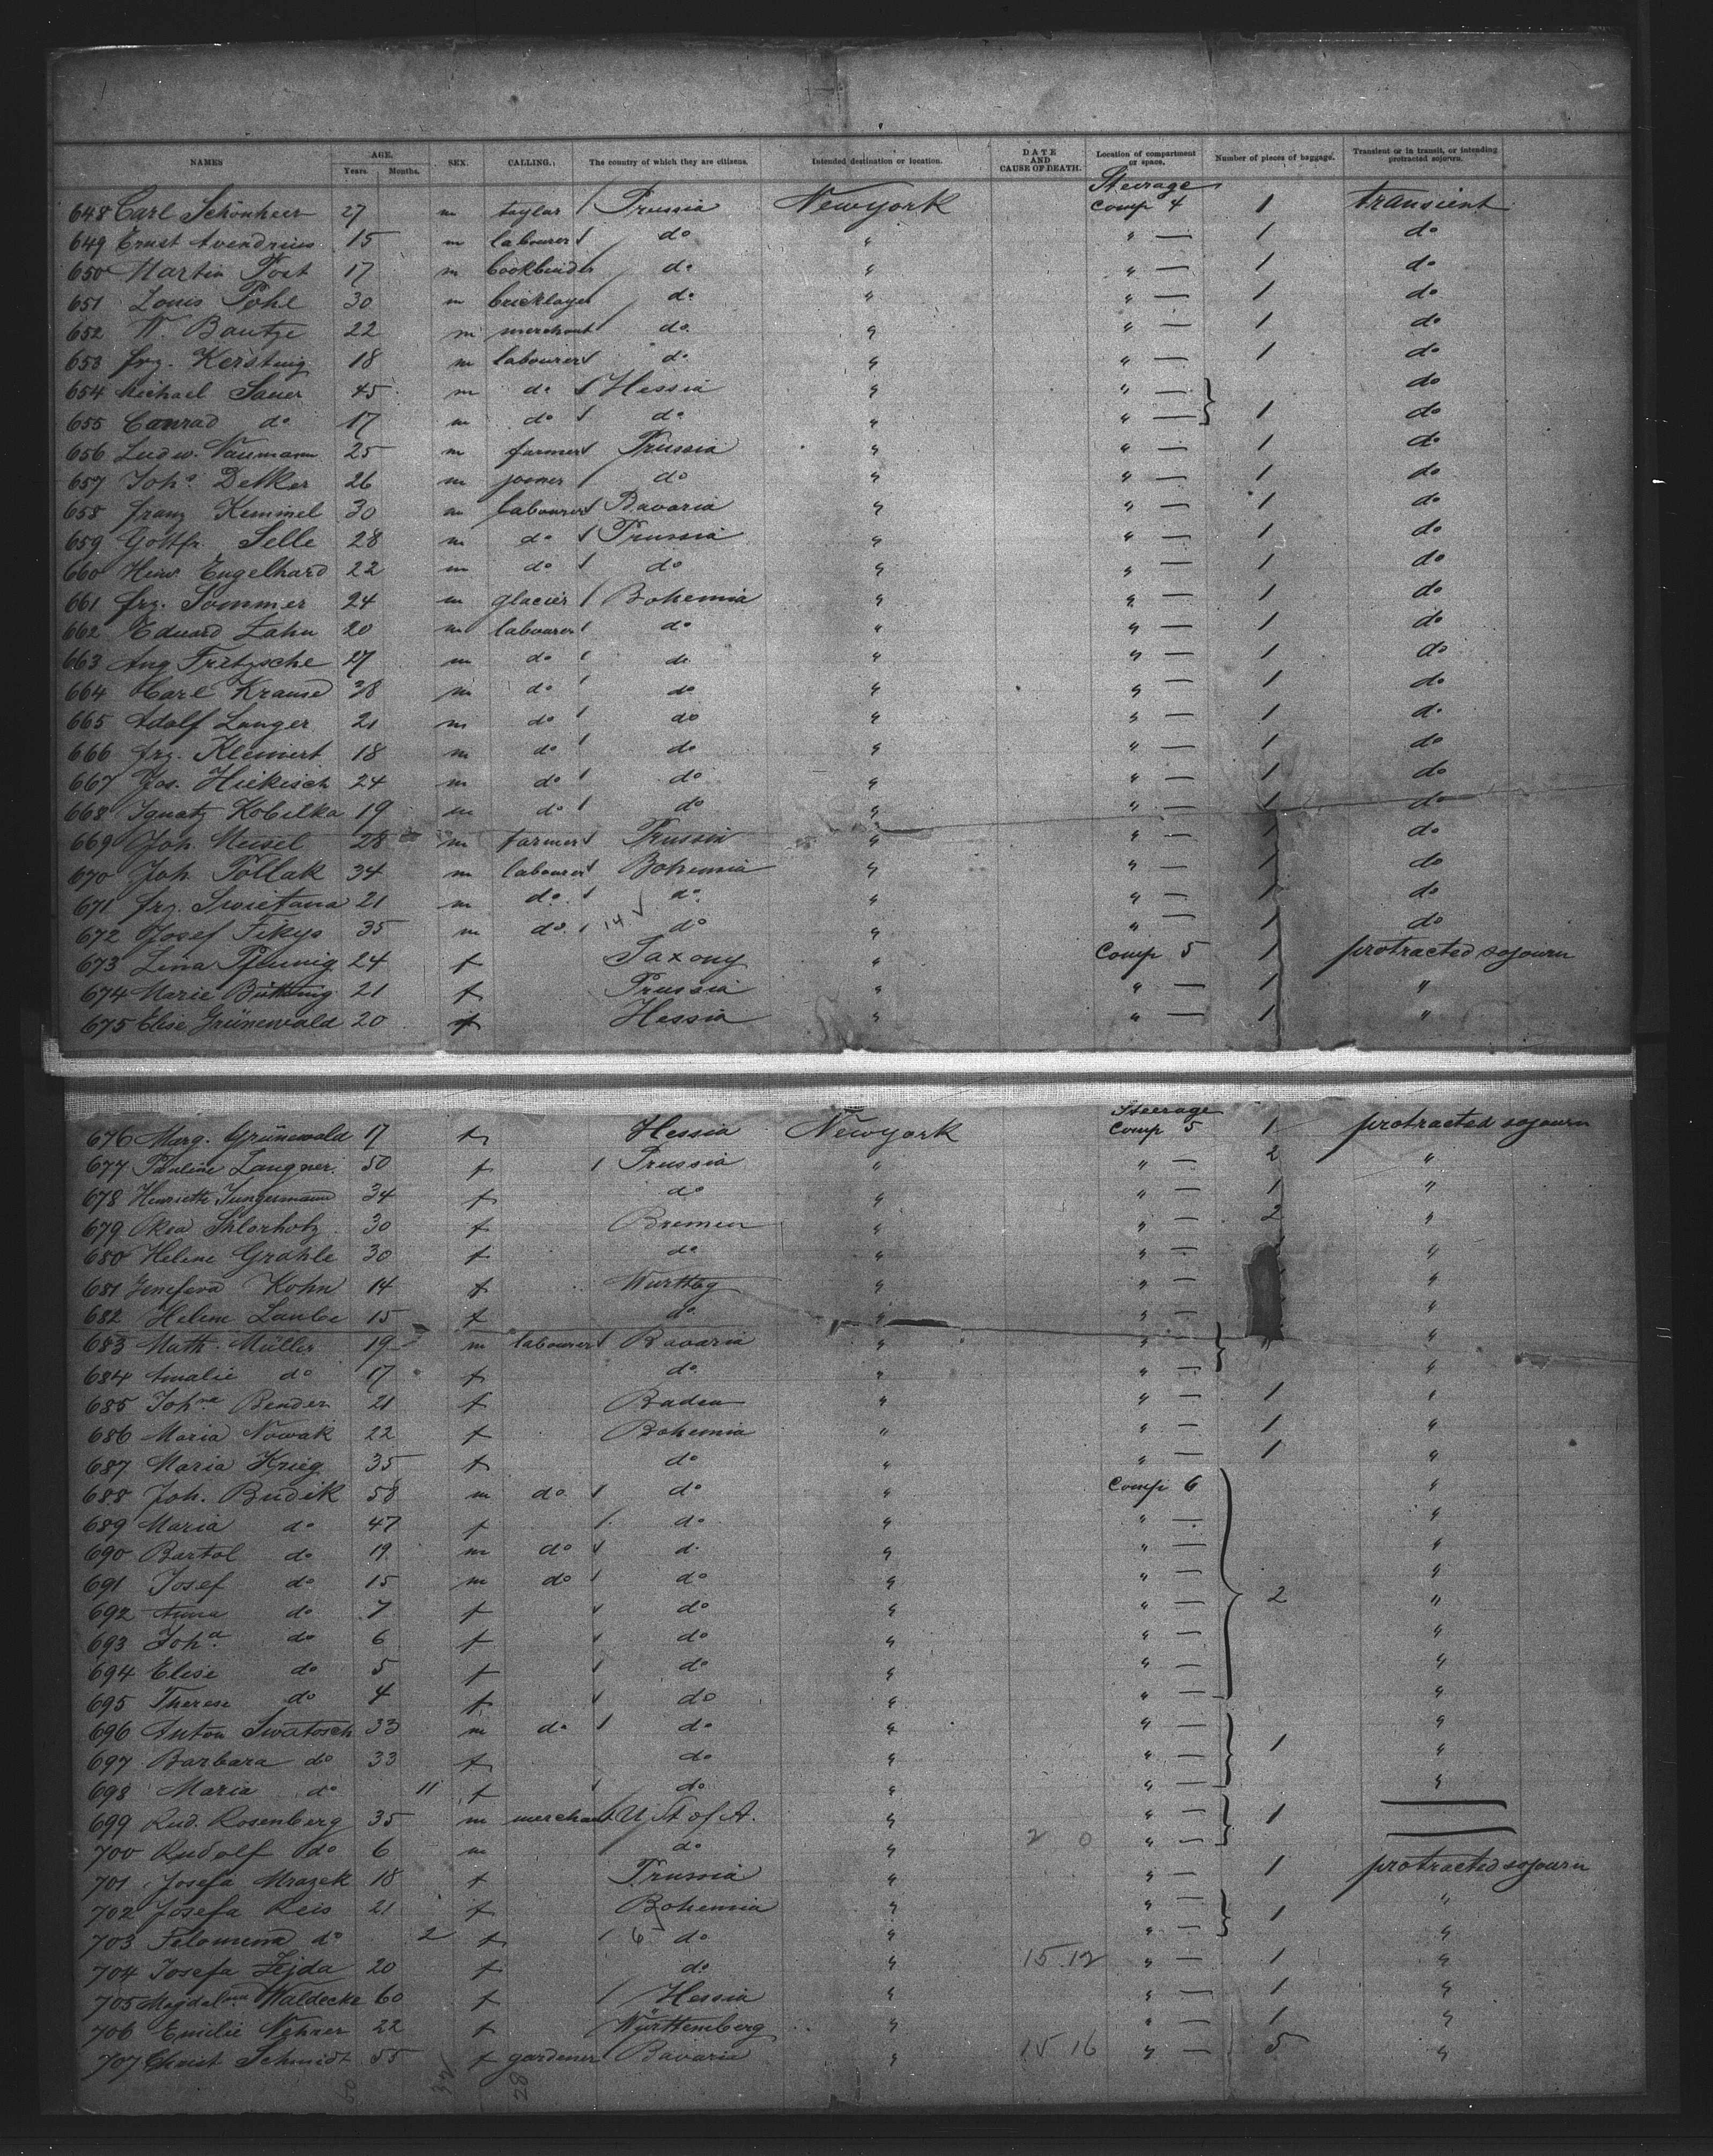 NAMES AGE. Years. Months. SEX. CALLING. The country of which they are citizens. Intended destination or location. DATE AND CAUSE OF DEATH. Location of compartment or space. Number of pieces of baggage. Transient or in transit, or intending protracted sojourn.
648 Carl Schönherr 27 m taylor / Prussia Newyork Steerage Comp 4 1 transient
649 Ernst Avendrius 15 m labourer / do " " — 1 do
650 Martin Post 17 m bookbinder do " " — 1 do
651 Louis Pohl 30 m bricklayer do " " — 1 do
652 W. Bautze 22 m merchant do " " — 1 do
653 frz. Kersting 18 m labourer / do " " — 1 do
654 Michael Sauer 45 m do / Hessia " " — do
655 Conrad do 17 m do / do " " — 1 do
656 Ludw. Naumann 25 m farmer / Prussia " " — 1 do
657 Joh. Detker 26 m joiner / do " " — 1 do
658 franz Kemmel 30 m labourer / Bavaria " " — 1 do
659 Gottfr. Selle 28 m do / Prussia " " — 1 do
660 Heinr. Engelhard 22 m do / do " " — 1 do
661 frz. Sommer 24 m glacier / Bohemia " " — 1 do
662 Eduard Zahn 20 m labourer / do " " — 1 do
663 Aug Fritzsche 27 m do / do " " — 1 do
664 Carl Krause 38 m do / do " " — 1 do
665 Adolf Langer 21 m do / do " " — 1 do
666 frz. Klemert 18 m do / do " " — 1 do
667 Jos. Hickisch 24 m do / do " " — 1 do
668 Ignatz Kobilka 19 m do / do " " — 1 do
669 Joh. Meisel 28 m farmer / Prussia " " — 1 do
670 Joh. Pollak 34 m labourer / Bohemia " " — 1 do
671 frz. Swietana 21 m do / do " " — 1 do
672 Josef Fikys 35 m do / 14 √ do " " — 1 do
673 Lina Pfennig 24 f Saxony " Comp 5 1 protracted sojourn
674 Marie Bütting 21 f Prussia " " — 1 "
675 Elise Grünewald 20 f Hessia " " — 1 "
676 Marg. Grünewald 17 f Hessia Newyork Steerage Comp 5 1 protracted sojourn
677 Pauline Langner 50 f / Prussia " " — 2 "
678 Henriette Jungermann 34 f do " " — 1 "
679 Okea Shlorholz 30 f Bremen " " — 2 "
680 Helene Grahle 30 f do " " — "
681 Genefeva Kohn 14 f Wurttbg " " — "
682 Helene Laube 15 f do " " — "
683 Math. Müller 19 m labourer / Bavaria " " — "
684 Amalie do 17 f do " " — "
685 Johna Bender 21 f Baden " " — 1 "
686 Maria Nowak 22 f Bohemia " " — 1 "
687 Maria Krieg 35 f do " " — 1 "
688 Joh. Budik 58 m do / do " Comp 6 "
689 Maria do 47 f / do " " — "
690 Bartol do 19 m do / do " " — "
691 Josef do 15 m do / do " " — "
692 Anna do 7 f / do " " — 2 "
693 Joha do 6 f / do " " — "
694 Elise do 5 f / do " " — "
695 Therese do 4 f / do " " — "
696 Anton Swatosch 33 m do / do " " — "
697 Barbara do 33 f do " " — 1 "
698 Maria do 11 f / do " " — "
699 Rud. Rosenberg 35 m merchant U. St of A. " " — 1 —
700 Rudolf do 6 m do " 2 0 " — —
701 Josefa Mrazek 18 f Prussia " " — 1 protracted sojourn
702 Josefa Reis 21 f Bohemia " " — 1 "
703 Felomena do 2 f / 6 do " " — "
704 Josefa Zejda 20 f do " 15 12 " — 1 "
705 Magdalena Waldecke 60 f / Hessia " " — 1 "
706 Emilie Nehrer 22 f Württemberg " " — 1 "
707 Christ Schmidt 55 f gardener Bavaria " 15 16 " — 5 "
28